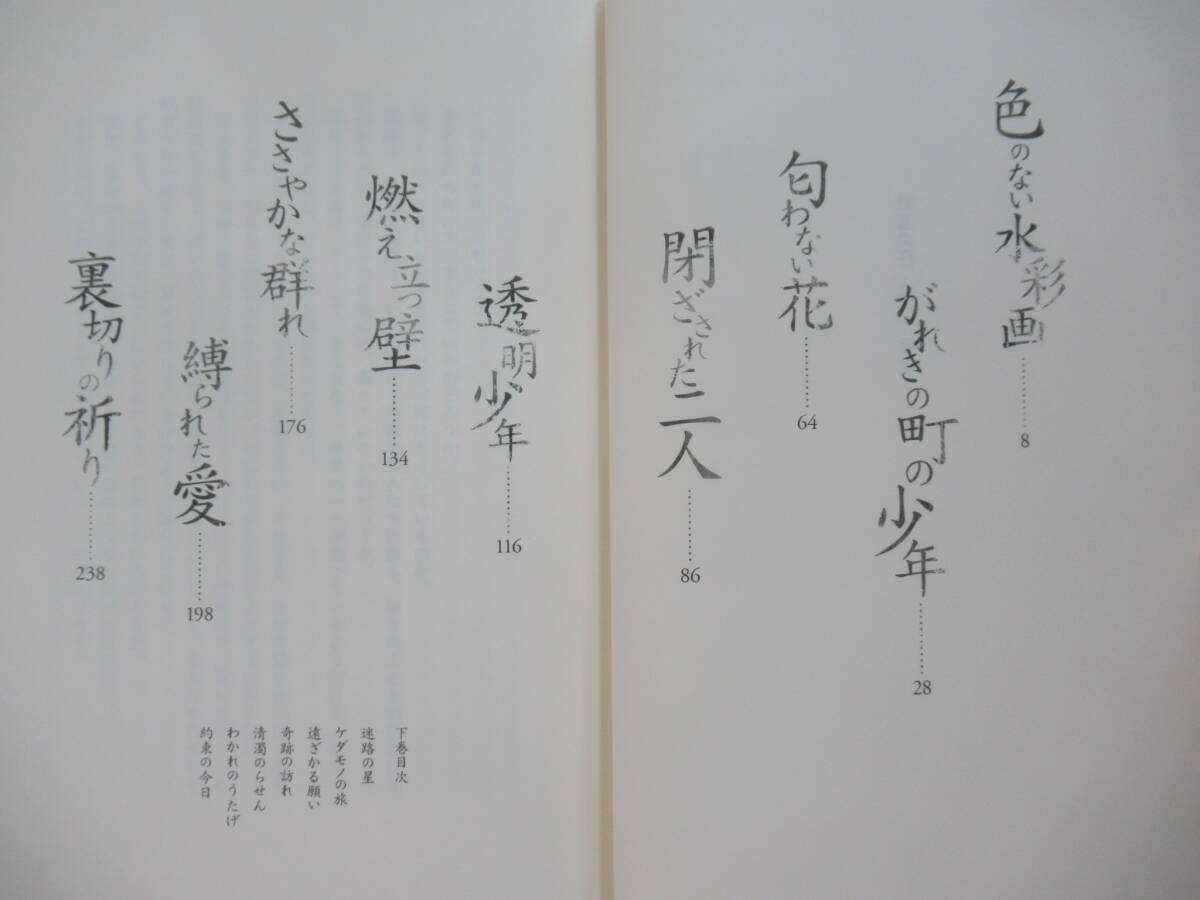 色のない水彩画…………8
がれきの町の少年…………28
匂わない花…………64
閉ざされた二人…………86
透明少年…………116
燃え立つ壁…………134
ささやかな群れ…………176
縛られた愛…………198
裏切りの祈り…………238
下巻目次
迷路の星
ケダモノの旅
遠ざかる願い
奇跡の訪れ
清濁のらせん
わかれのうたげ
約束の今日